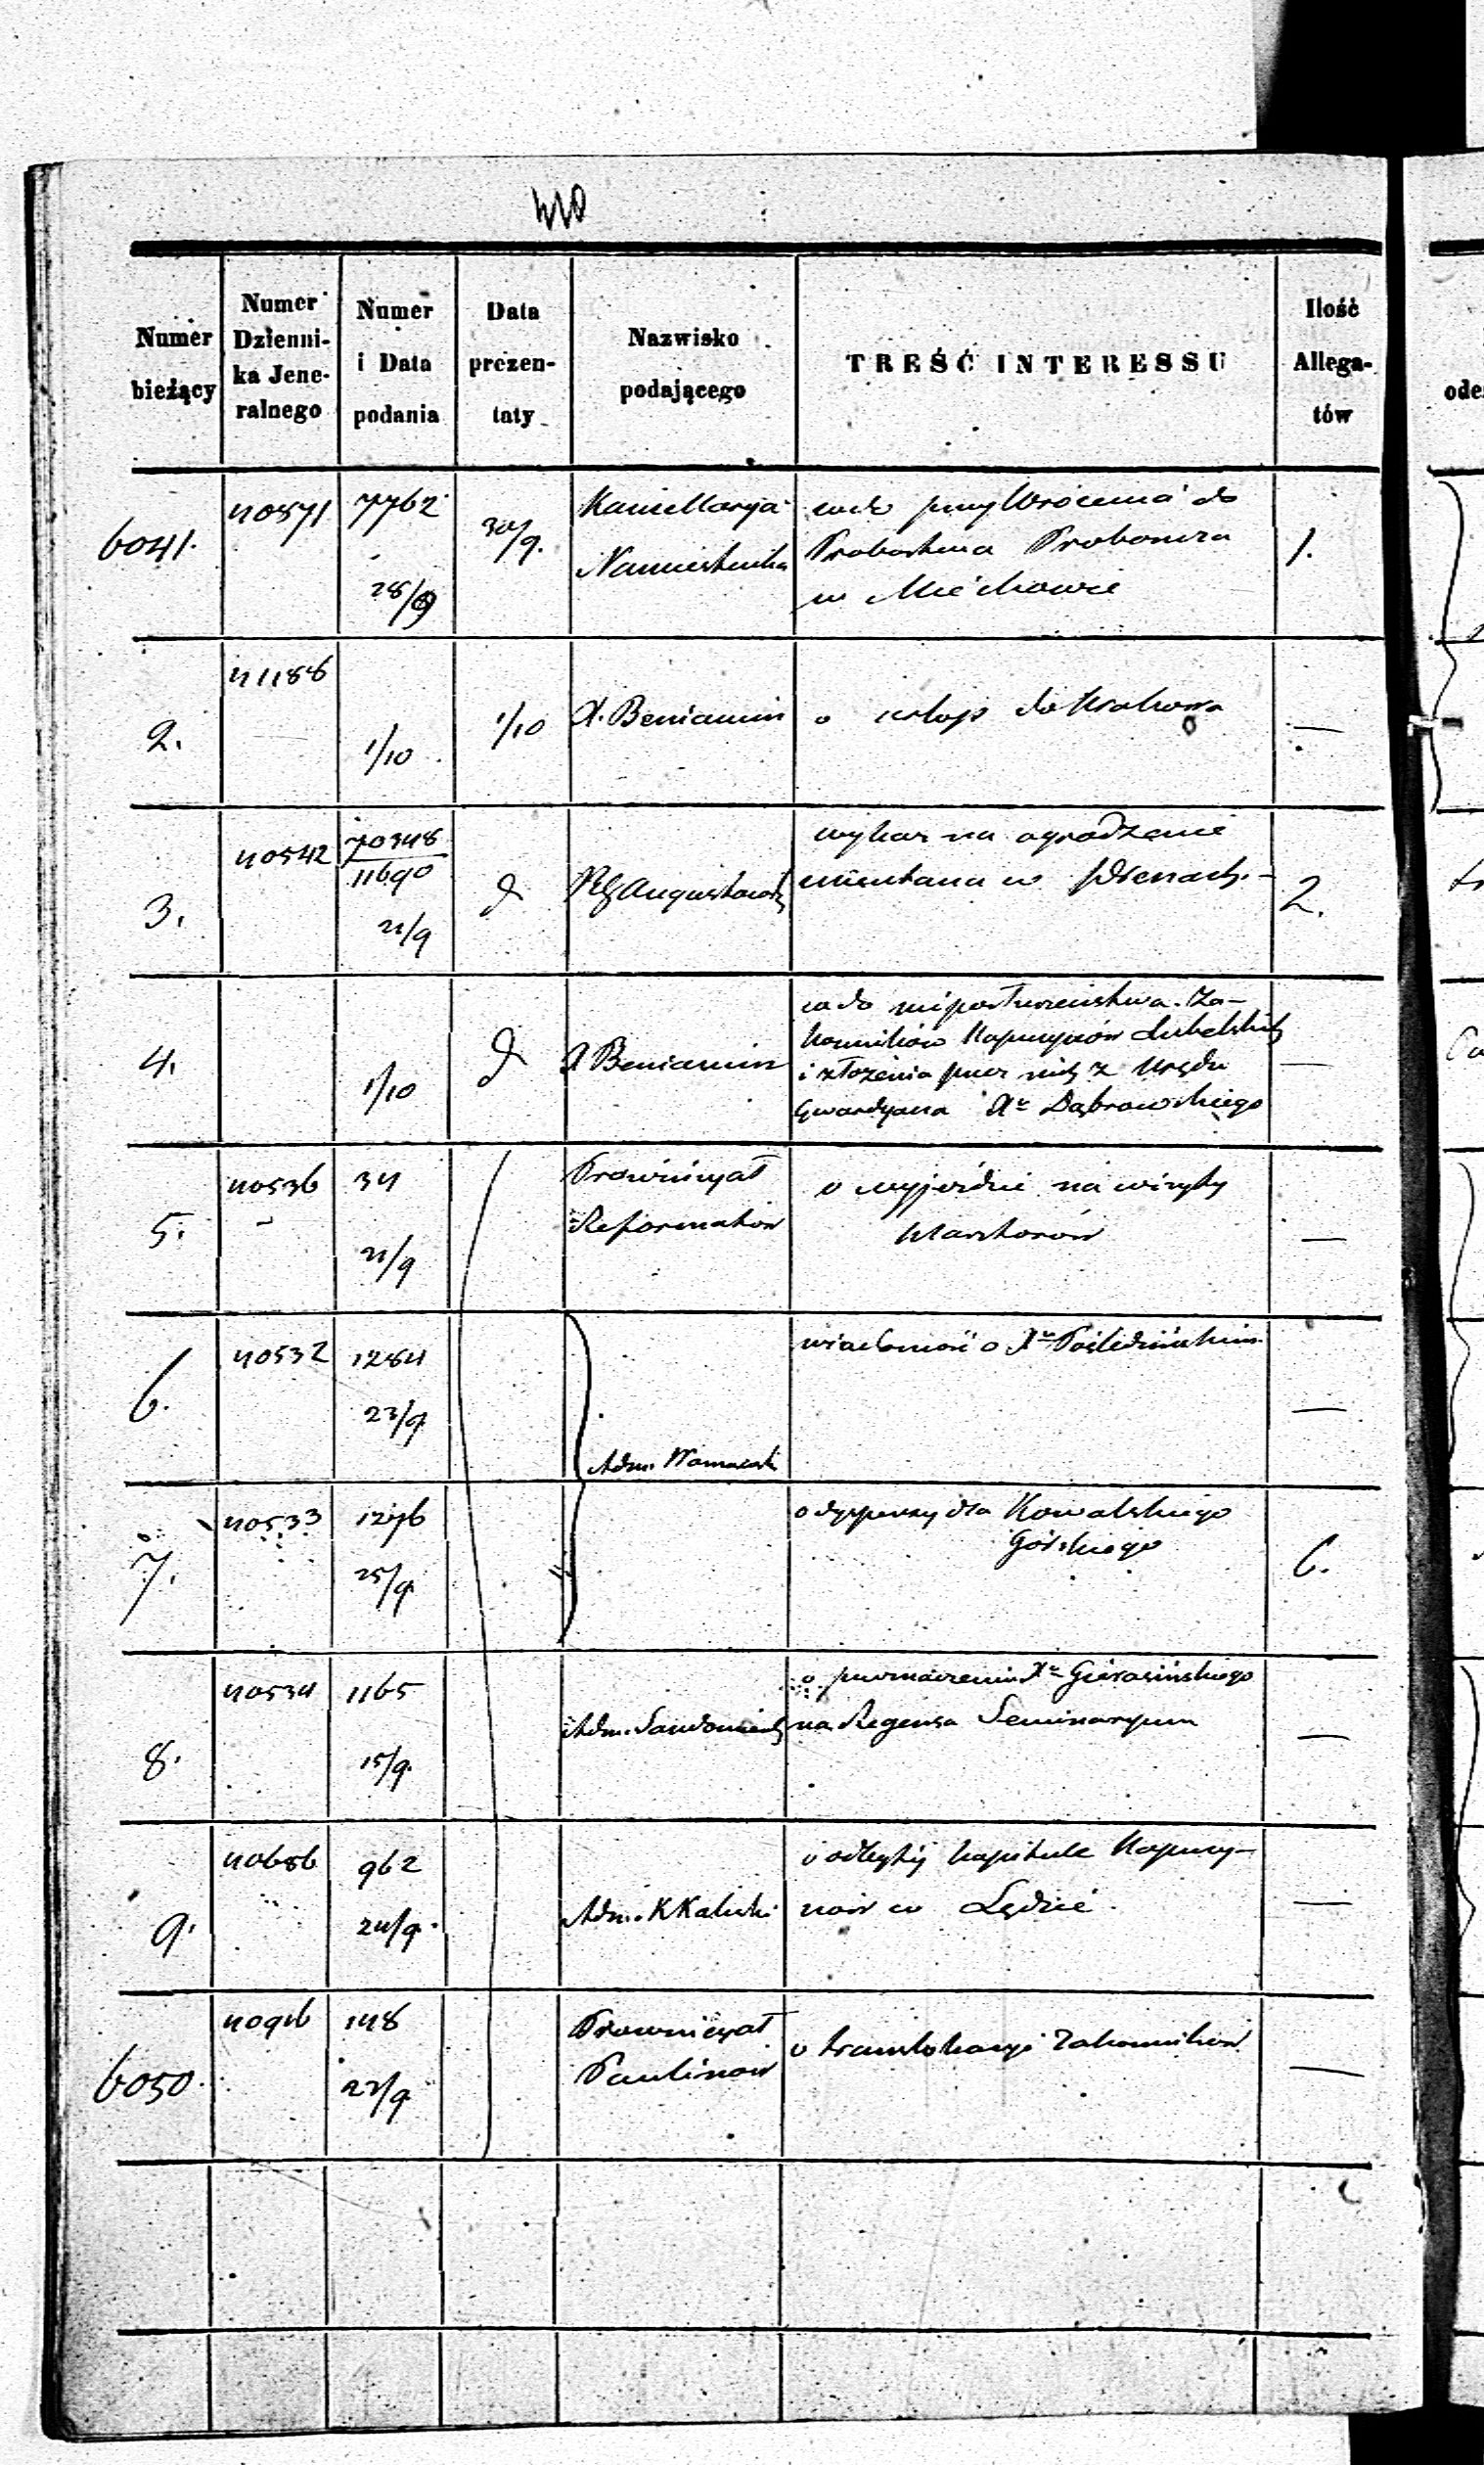 Numer bieżący
Numer Dzienni-ka Jene-ralnego
Numer i Data podania
Data prezen-taty
Nazwisko podającego
TREŚĆ INTERESSU
Ilość Allega-tów
6041.
40571
7762
28/9
30/9.
Kancellarya
Namiestnika
wzdo przywrócenia do
Probostwa Proboszcza
w Miechowie
1.
2.
41186
1/10
1/10
X. Beniamin
o urlop do Krakowa
—
3.
40542
70348
11690
21/9
d
RG Augustowski
wykaz na ogrodzenie
cmentarza w
2.
4.
1/10
d
X Beniamin
wzdo nieposłuszeństwa Za-
konników Kapucynów Lubelskich
i złożenia przez nich z Urzędu
Gwardyana Xa Dąbrowskiego
—
5.
40536
34
21/9
Prowincyał
Reformatów
o wyjeździe na wizyty
klasztorów
—
6.
40532
1284
23/9
Adm. Warszawski
wiadomość o Xu
—
7.
40533
1276
25/9.
o dyspensy dla Kowalskiego
Górskiego
6.
8.
40534
1165
15/9.
Adm. Sandomierski
o przeznaczeniu Xa Gierasińskiego
na Regensa Seminaryum
—
9.
40686
962
24/9.
Adm. KKaliski
o odbytej kapitule Kapucy-
nów w Lędzie
—
6050.
40916
148
27/9
Prowincyał
Paulinów
o translokacyi Zakonników
—